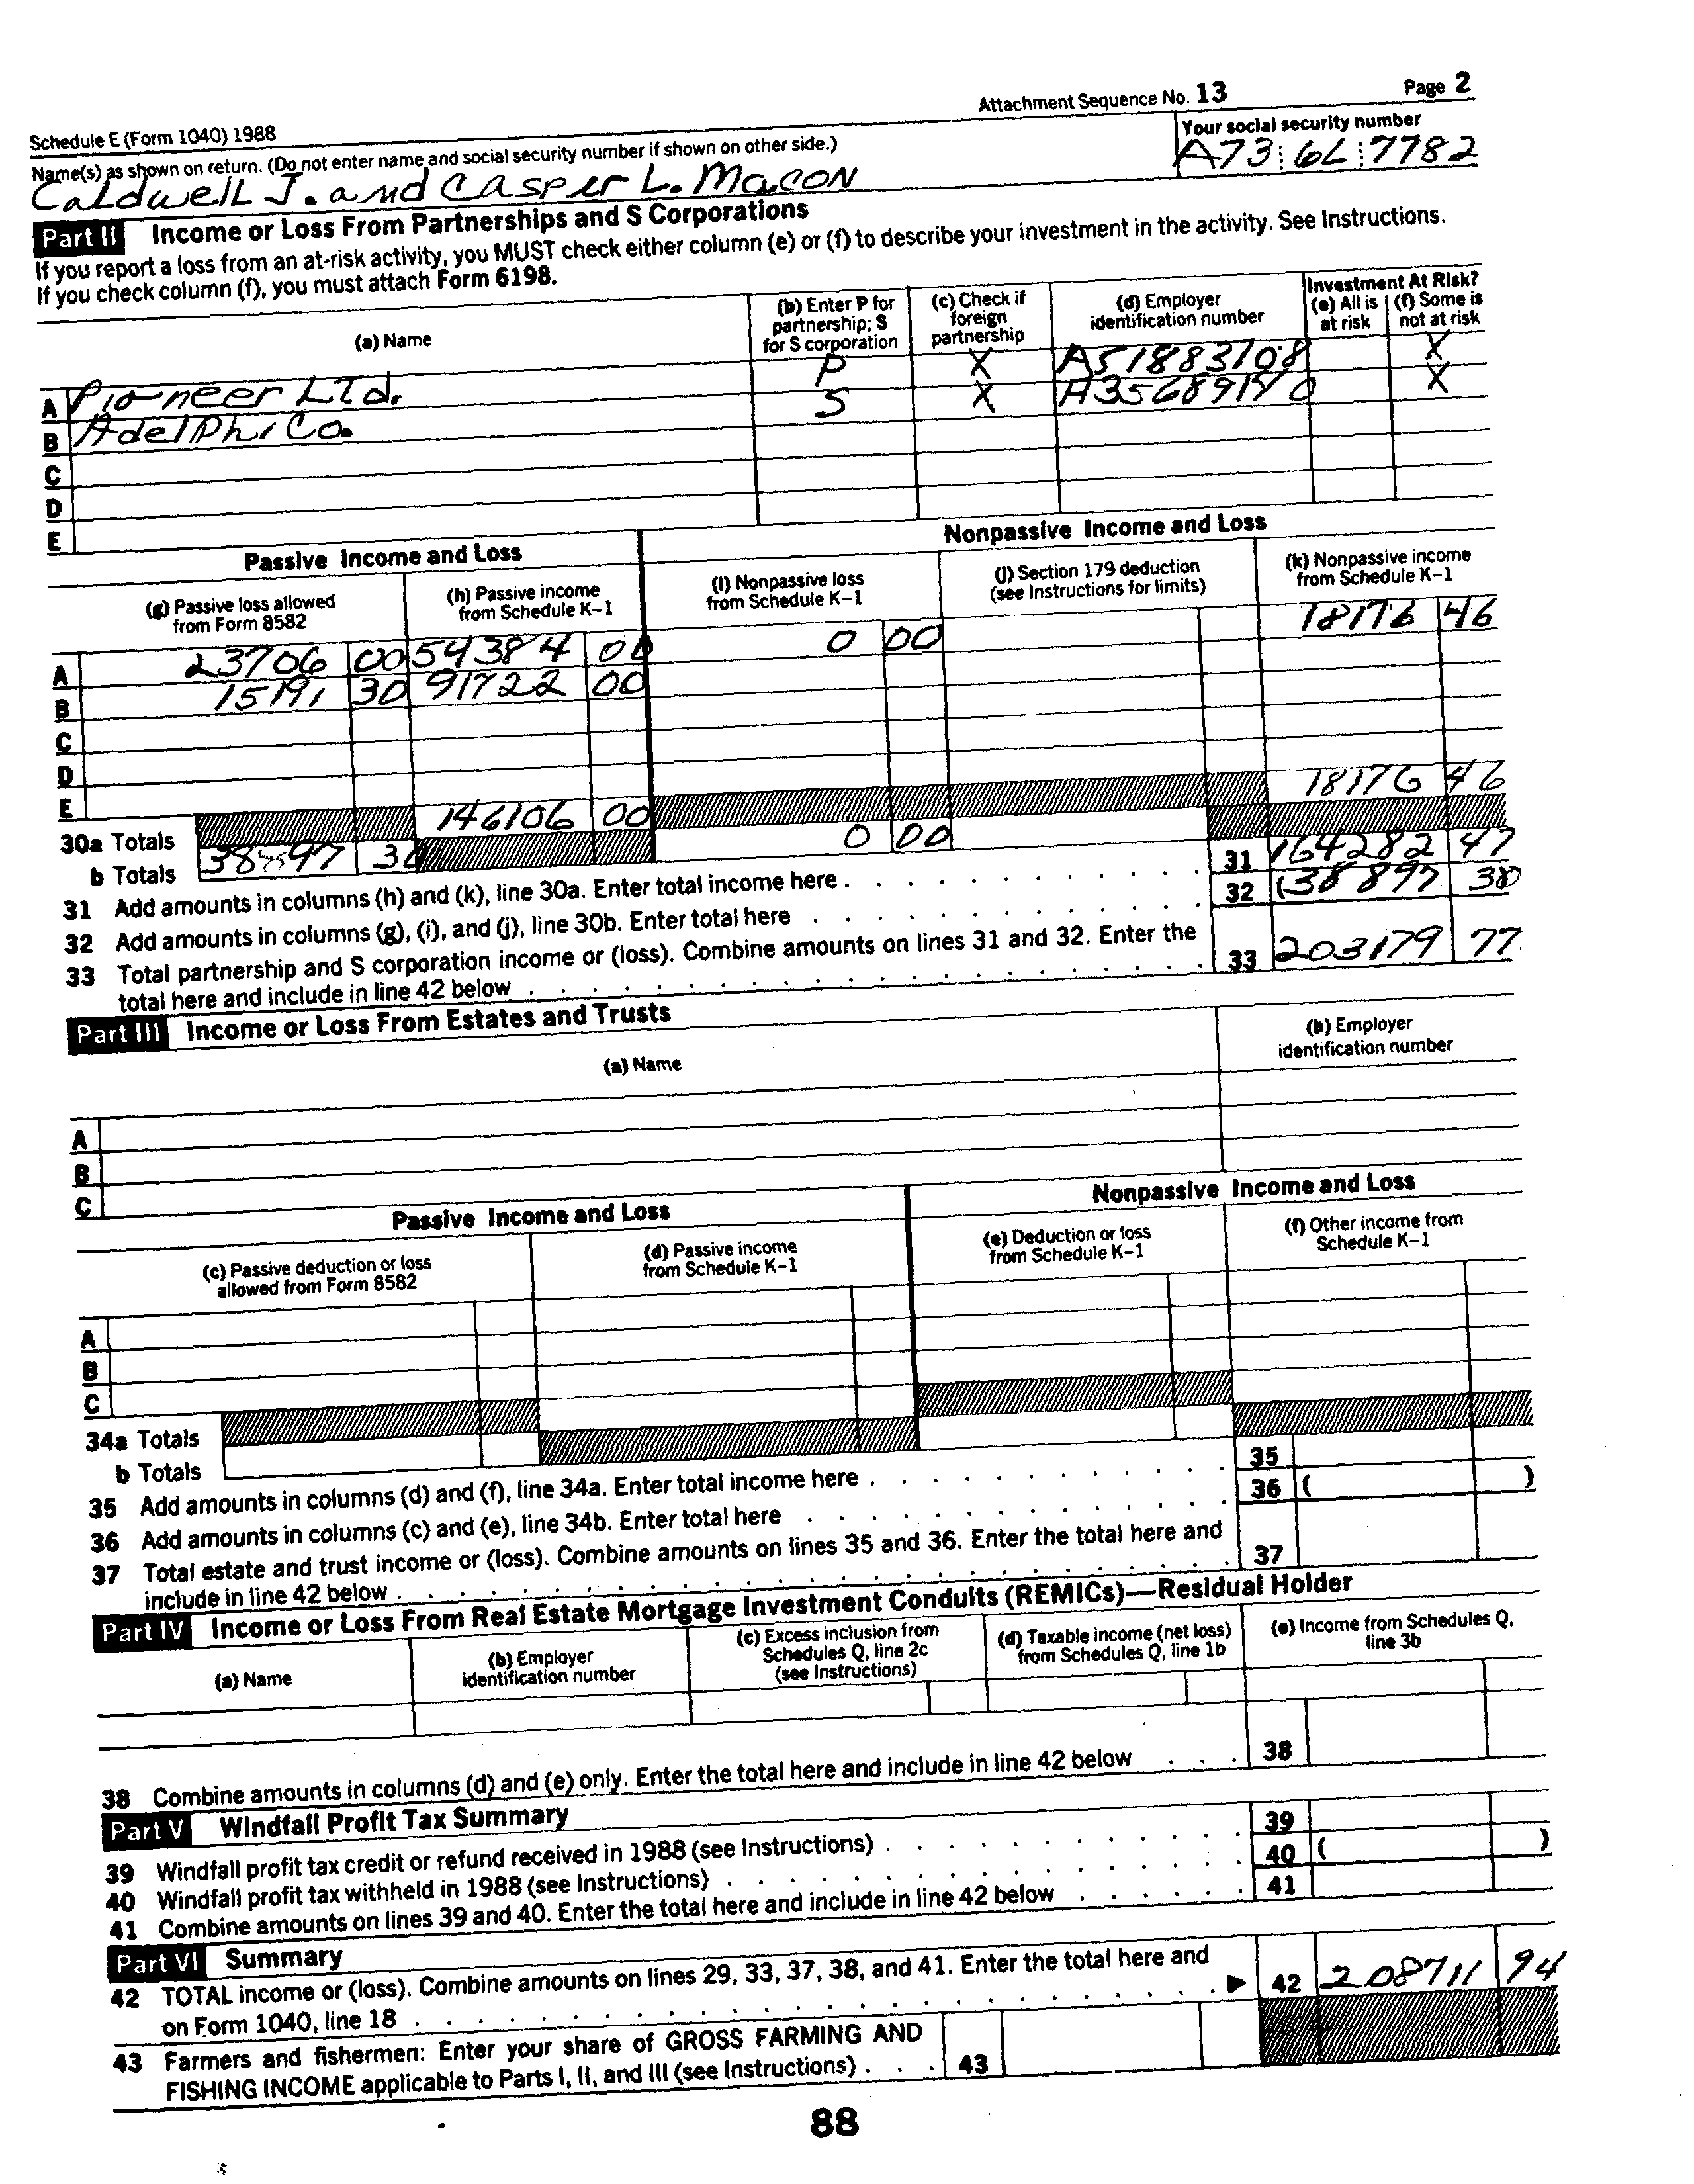 Schedule E (Form 1040) 1988
Attachment Sequence No. 13
Page 2
Name(s) as shown on return. (Do not enter name and social security number if shown on other side.)
Your social security number
Caldwell J. and Casper L. Macon
A73 6L 7782
Part II Income or Loss From Partnerships and S Corporations
If you report a loss from an at-risk activity, you MUST check either column (e) or (f) to describe your investment in the activity. See Instructions.
If you check column (f), you must attach Form 6198.
(a) Name
(b) Enter P for partnership; S for S corporation
(c) Check if foreign partnership
(d) Employer identification number
Investment At Risk?
(e) All is at risk
(f) Some is not at risk
A Pioneer LTd. P X A51883708 X
B Adelphi Co. S X A35689140 X
C
D
E
Passive Income and Loss
Nonpassive Income and Loss
(g) Passive loss allowed from Form 8582
(h) Passive income from Schedule K–1
(i) Nonpassive loss from Schedule K–1
(j) Section 179 deduction (see Instructions for limits)
(k) Nonpassive income from Schedule K–1
A 23706 00 54384 00 0 00 18176 46
B 15191 30 91722 00
C
D
E
30a Totals 146106 00 18176 46
b Totals 38897 30 0 00
31 Add amounts in columns (h) and (k), line 30a. Enter total income here 31 164282 47
32 Add amounts in columns (g), (i), and (j), line 30b. Enter total here 32 (38 897 30
33 Total partnership and S corporation income or (loss). Combine amounts on lines 31 and 32. Enter the
total here and include in line 42 below 33 203179 77
Part III Income or Loss From Estates and Trusts
(a) Name
(b) Employer identification number
A
B
C
Passive Income and Loss
Nonpassive Income and Loss
(c) Passive deduction or loss allowed from Form 8582
(d) Passive income from Schedule K–1
(e) Deduction or loss from Schedule K–1
(f) Other income from Schedule K–1
A
B
C
34a Totals
b Totals
35 Add amounts in columns (d) and (f), line 34a. Enter total income here 35
36 Add amounts in columns (c) and (e), line 34b. Enter total here 36 ( )
37 Total estate and trust income or (loss). Combine amounts on lines 35 and 36. Enter the total here and
include in line 42 below 37
Part IV Income or Loss From Real Estate Mortgage Investment Conduits (REMICs)—Residual Holder
(a) Name
(b) Employer identification number
(c) Excess inclusion from Schedules Q, line 2c (see Instructions)
(d) Taxable income (net loss) from Schedules Q, line 1b
(e) Income from Schedules Q, line 3b
38 Combine amounts in columns (d) and (e) only. Enter the total here and include in line 42 below 38
Part V Windfall Profit Tax Summary
39 Windfall profit tax credit or refund received in 1988 (see Instructions) 39
40 Windfall profit tax withheld in 1988 (see Instructions) 40 ( )
41 Combine amounts on lines 39 and 40. Enter the total here and include in line 42 below 41
Part VI Summary
42 TOTAL income or (loss). Combine amounts on lines 29, 33, 37, 38, and 41. Enter the total here and
on Form 1040, line 18 ▶ 42 208711 94
43 Farmers and fishermen: Enter your share of GROSS FARMING AND
FISHING INCOME applicable to Parts I, II, and III (see Instructions) 43
88